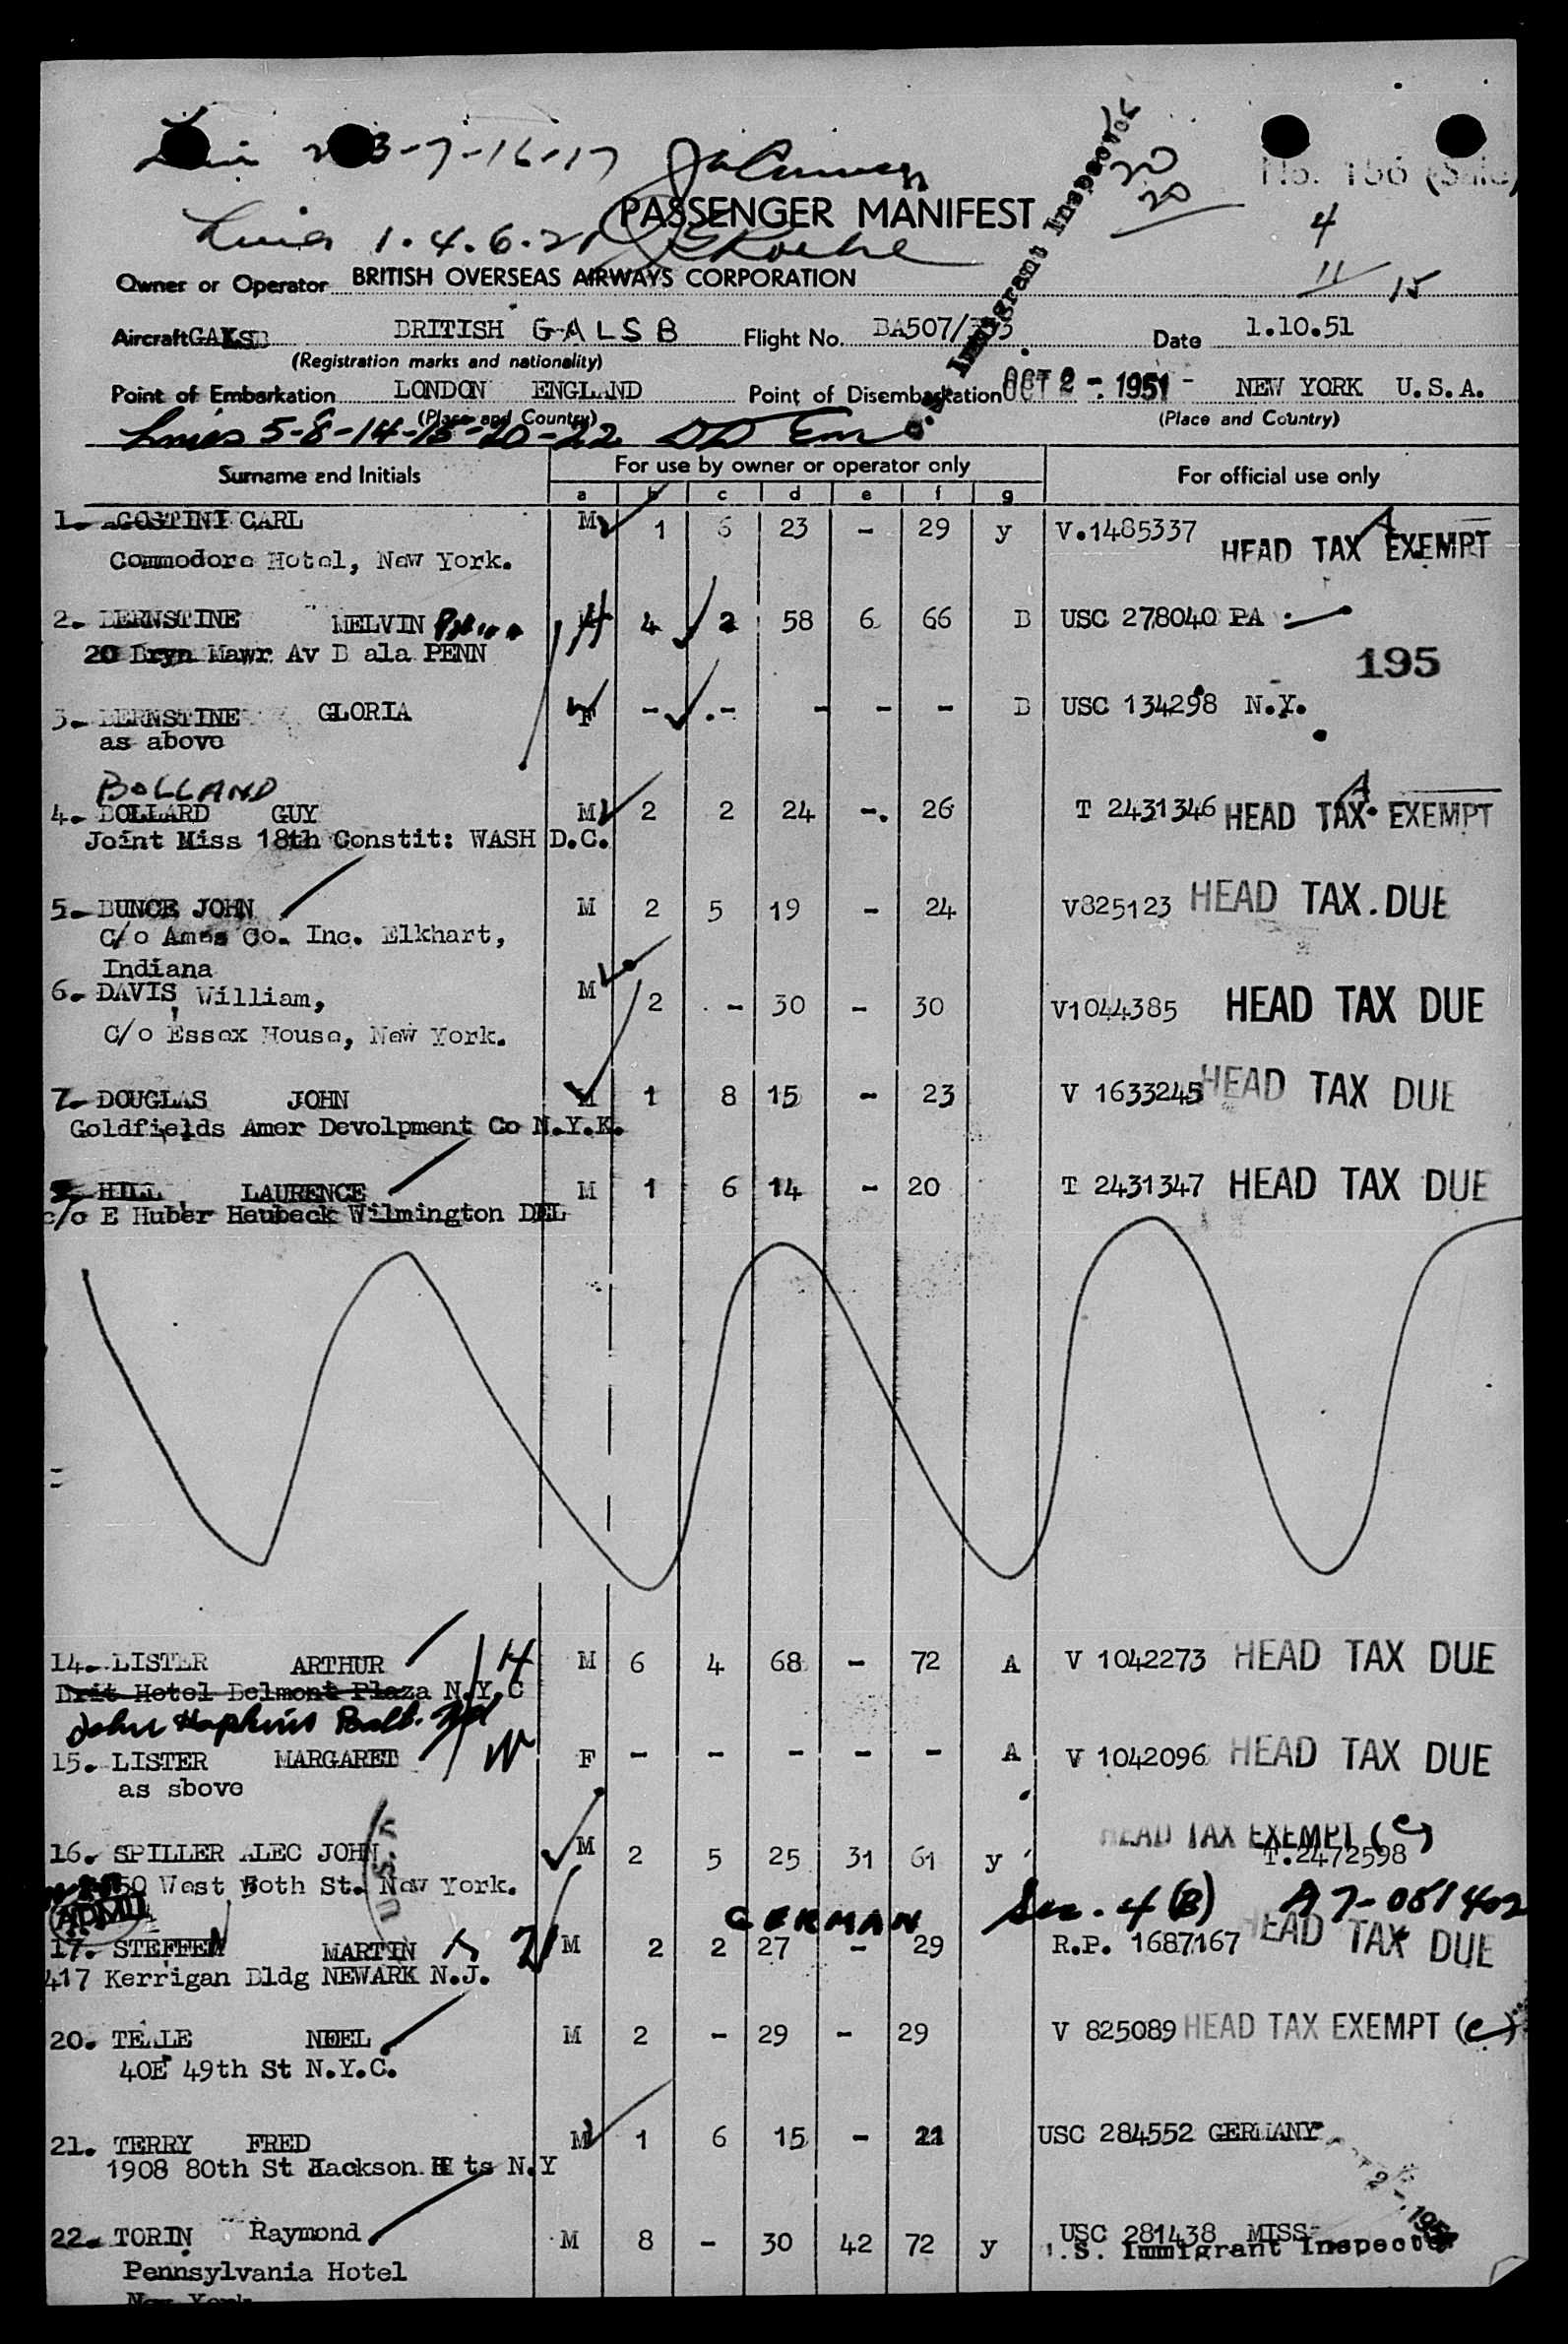 3-7-16-17
20
20
No. 156
PASSENGER MANIFEST
Immigrant Inspector
4
11 15
Lines 1.4.6.21
Owner or Operator BRITISH OVERSEAS AIRWAYS CORPORATION
Aircraft BRITISH G-ALSB Flight No. Date 1.10.51
(Registration marks and nationality)
Point of Embarkation LONDON ENGLAND Point of Disembarkation OCT 2 - 1951 - NEW YORK U.S.A.
(Place and Country) (Place and Country)
Lines 5-8-14-15-20-22
Surname and Initials For use by owner or operator only For official use only
a b c d e f g
1. AGOSTINI CARL M 1 6 23 - 29 y V.1485337 A HEAD TAX EXEMPT
Commodore Hotel, New York.
2. BERNSTINE MELVIN H 4 2 58 6 66 B USC 278040 PA
20 Bryn Mawr Av B ala PENN 195
3. BERNSTINE GLORIA F - - - - - B USC 134298 N.Y.
as above
BOLLAND
4. BOLLARD GUY M 2 2 24 - 26 T 2431346 A HEAD TAX EXEMPT
Joint Miss 18th Constit: WASH D.C.
5. BUNCE JOHN M 2 5 19 - 24 V825123 HEAD TAX DUE
C/o Ames Co. Inc. Elkhart,
Indiana
6. DAVIS, William, M 2 - 30 - 30 V1044385 HEAD TAX DUE
C/o Essex House, New York.
7. DOUGLAS JOHN M 1 8 15 - 23 V 1633245 HEAD TAX DUE
Goldfields Amer Devolpment Co N.Y.K.
HILL LAURENCE M 1 6 14 - 20 T 2431347 HEAD TAX DUE
c/o E Huber Heubeck Wilmington DEL
14. LISTER ARTHUR H M 6 4 68 - 72 A V 1042273 HEAD TAX DUE
Brit Hotel Belmont Plaza N.Y.C
John Hopkins Balt. Md
15. LISTER MARGARET W F - - - - - A V 1042096 HEAD TAX DUE
as sbove
HEAD TAX EXEMPT (e)
16. SPILLER ALEC JOHN M 2 5 25 31 61 y T.2472598
West 50th St. New York.
ADMIT GERMAN Sec. 4 (B) A7-081402
17. STEFFEN MARTIN M 2 2 27 - 29 R.P. 1687167 HEAD TAX DUE
417 Kerrigan Bldg NEWARK N.J.
20. TEALE NOEL M 2 - 29 - 29 V 825089 HEAD TAX EXEMPT (e)
40E 49th St N.Y.C.
21. TERRY FRED M 1 6 15 - 21 USC 284552 GERMANY
1908 80th St Jackson H ts N.Y
22. TORIN Raymond M 8 - 30 42 72 y USC 281438 MISS
Pennsylvania Hotel .S. Immigrant Inspector
New York